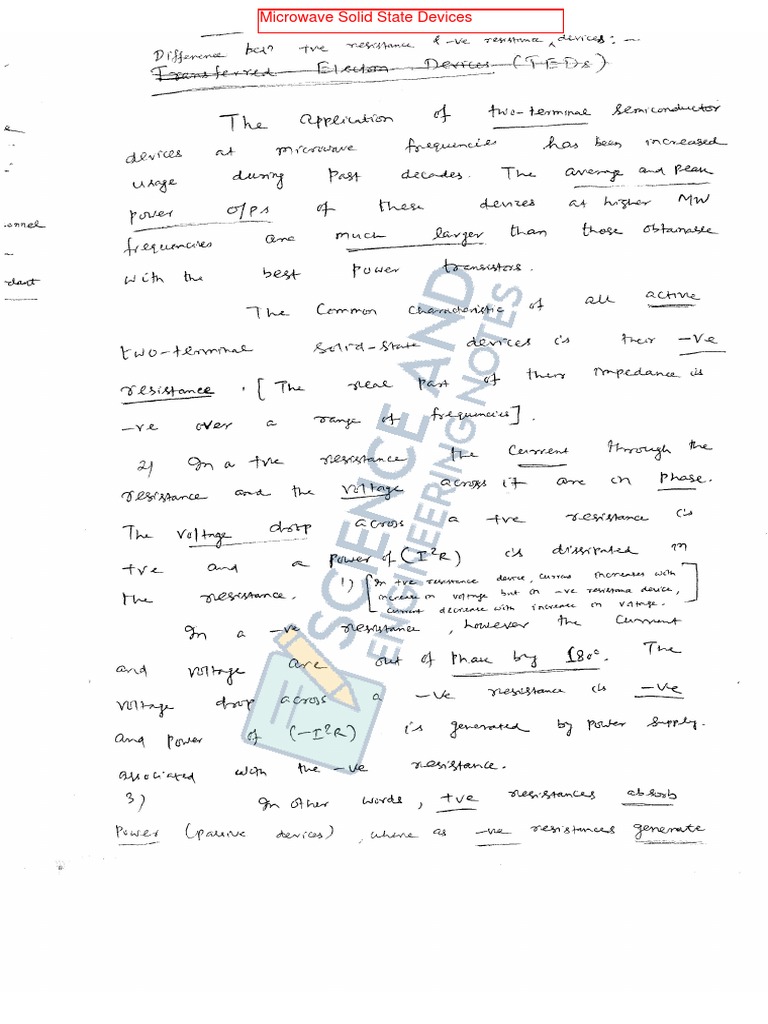 Microwave Solid State Devices
Difference betn +ve resistance & -ve resistance devices: -
Transferred Electron Devices (TEDs)
The application of two-terminal semiconductor
devices at microwave frequencies has been increased
usage during past decades. The average and peak
power o/ps of these devices at higher MW
frequencies are much larger than those obtainable
with the best power transistors.
The Common characteristic of all active
two-terminal solid-state devices is their -ve
resistance. [The real part of their impedance is
-ve over a range of frequencies].
2) In a +ve resistance the current through the
resistance and the voltage across it are in phase.
The voltage drop across a +ve resistance is
+ve and a power of (I²R) is dissipated in
the resistance. 1) [In +ve resistance device, current increases with
increase in voltage but in -ve resistance device,
current decrease with increase in voltage.]
In a -ve resistance, however the current
and voltage are out of phase by 180°. The
voltage drop across a -ve resistance is -ve
and power of (-I²R) is generated by power supply.
associated with the -ve resistance.
3) In other words, +ve resistances absorb
power (passive devices), where as -ve resistances generate
onnel
SCIENCE AND
ENGINEERING NOTES